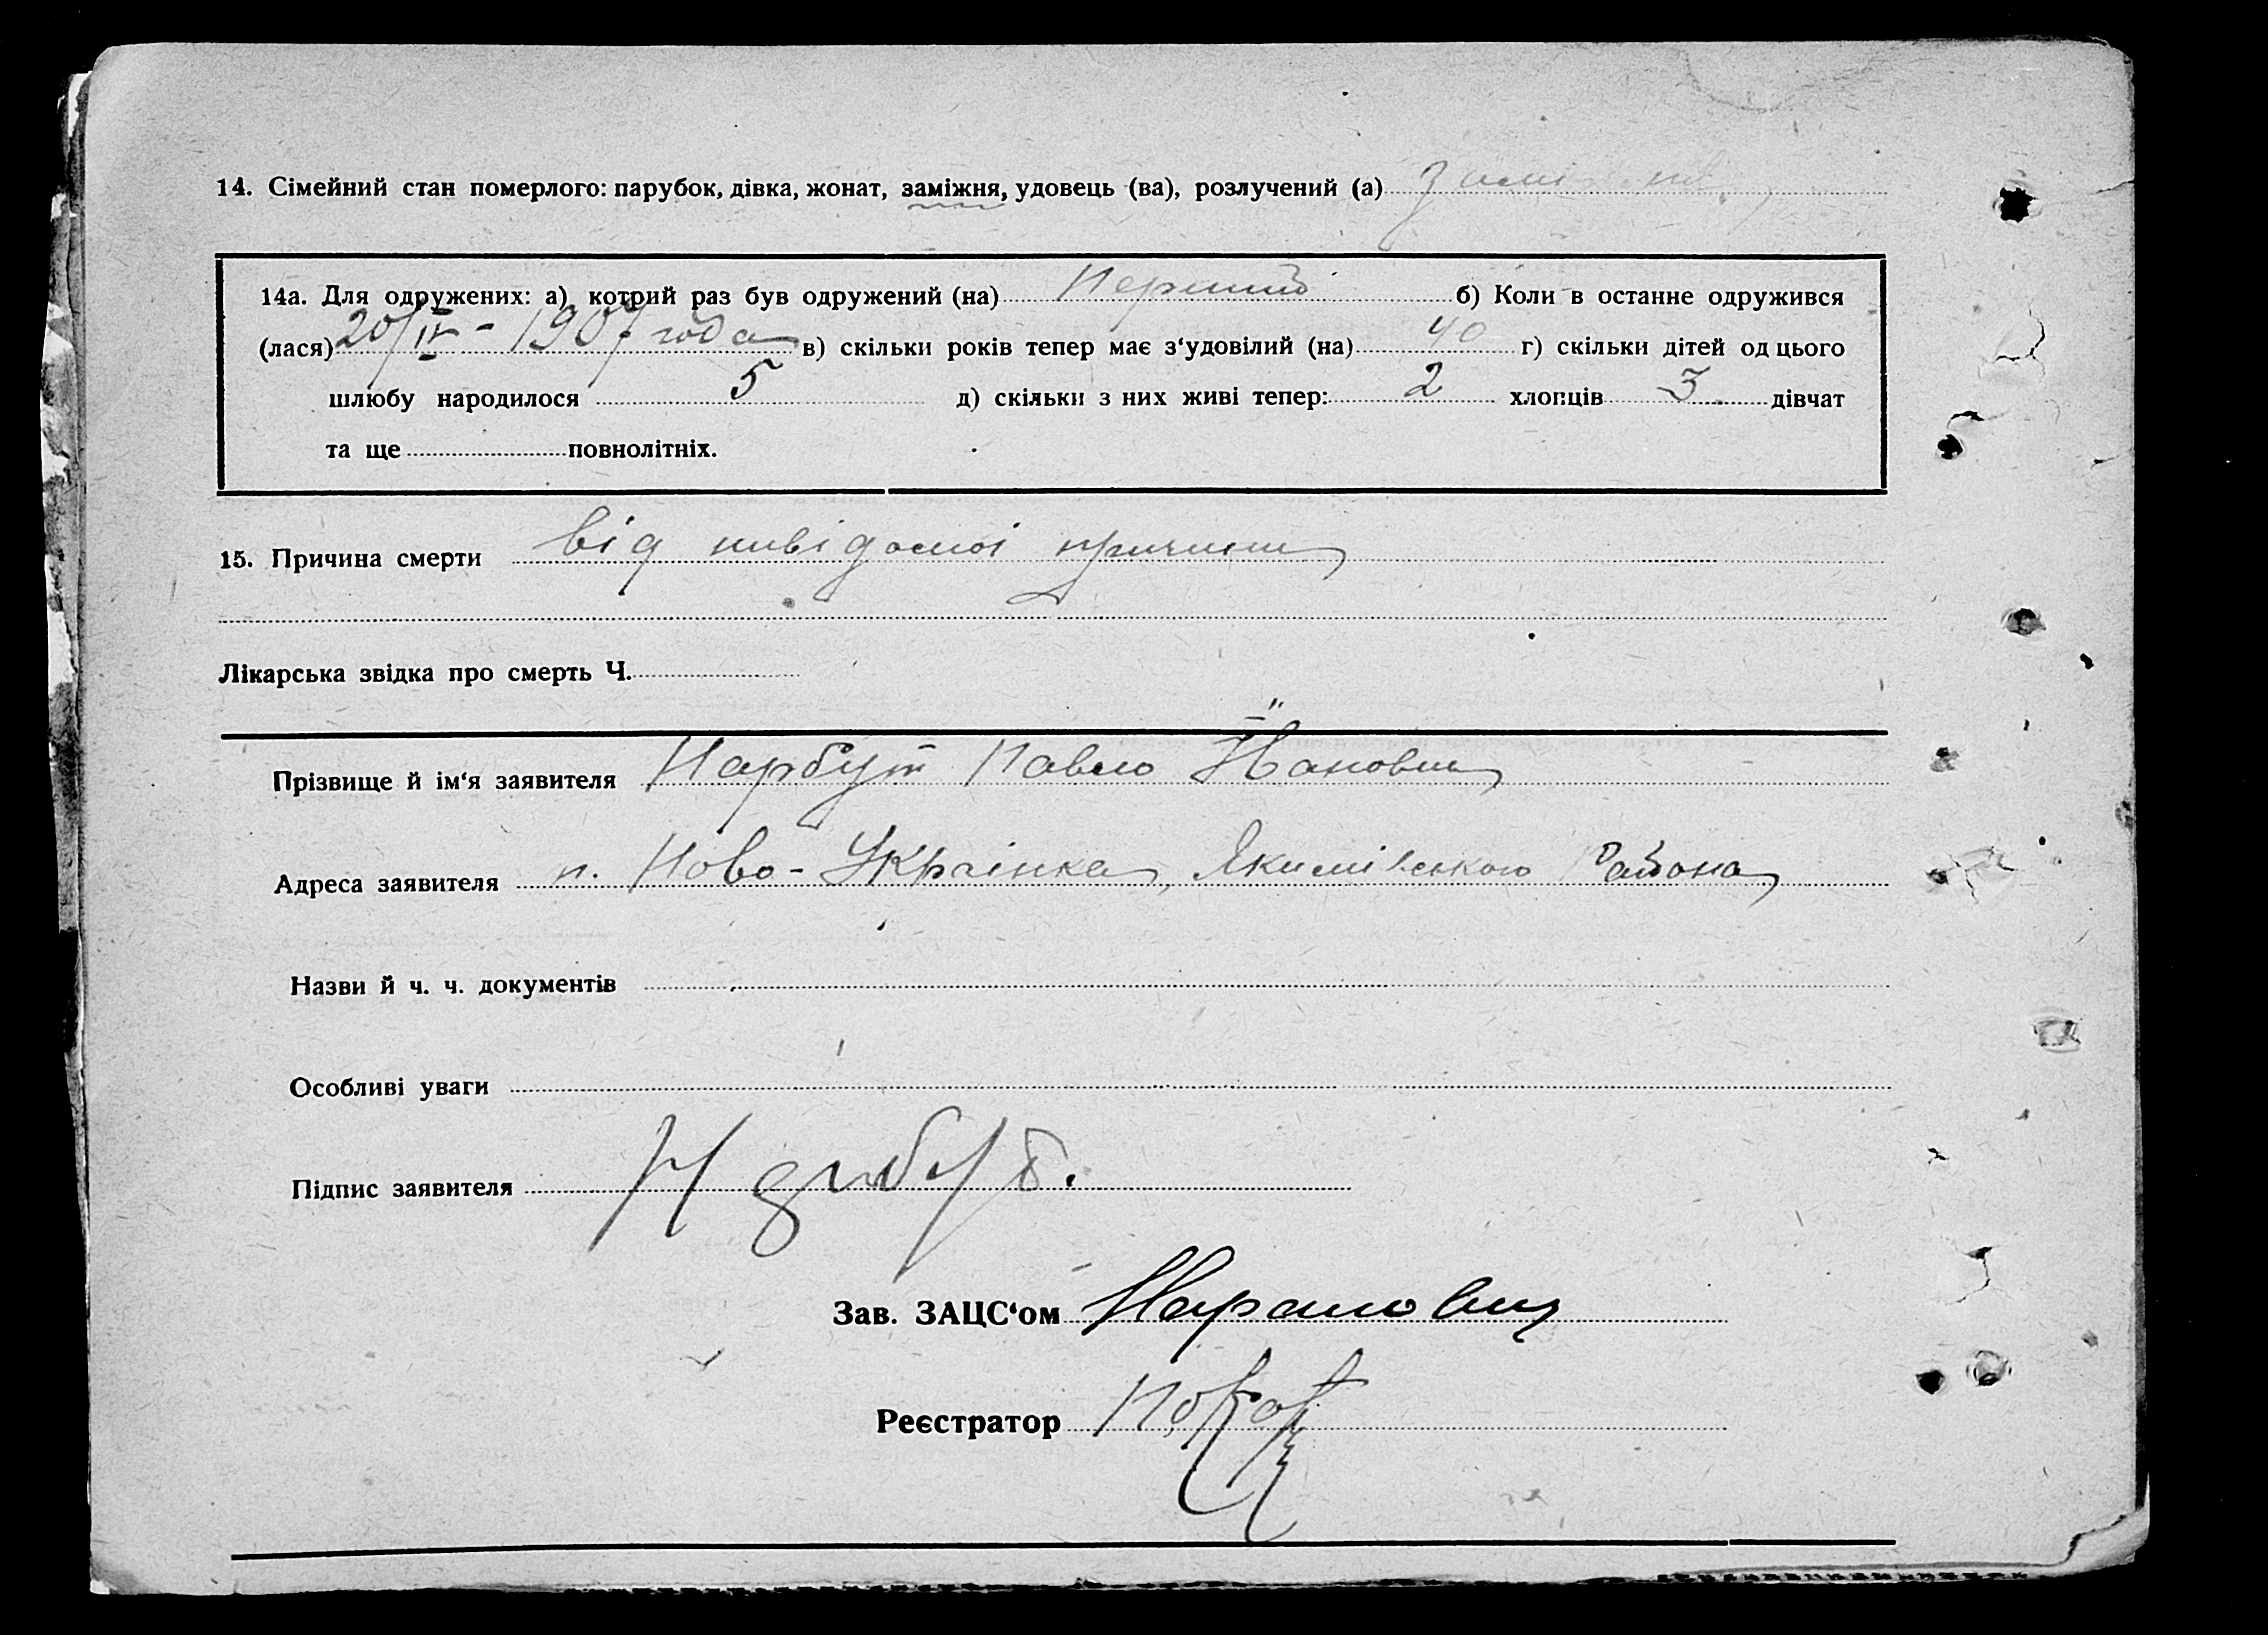 14. Сімейний стан померлого: парубок, дівка, жонат, заміжня, удовець (ва), розлучений (а)
14а. Для одружених: а) котрий раз був одружений (на) Перший б) Коли в останне одружився
(лася) 20/IV - 1907 года в) скільки років тепер має з‘удовілий (на) 40 г) скільки дітей од цього
шлюбу народилося 5 д) скільки з них живі тепер: 2 хлопців 3 дівчат
та ще повнолітніх.
15. Причина смерти від невідомої причини
Лікарська звідка про смерть Ч.
Прізвище й ім‘я заявителя Нарбут Павло
Адреса заявителя п. Ново-Українка, Якимівського Района
Назви й ч. ч. документів
Особливі уваги
Підпис заявителя Нарбут.
Зав. ЗАЦС‘ом
Реєстратор